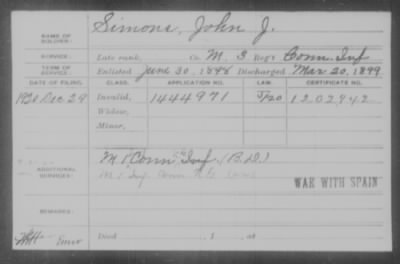 NAME OF SOLDIER: Simons, John J.
SERVICE: Late rank, Co. M, 3 Reg't Conn. Inf
TERM OF SERVICE: Enlisted June 30, 1898 Discharged Mar 20, 1899
DATE OF FILING. CLASS. APPLICATION NO. LAW. CERTIFICATE NO.
1920 Dec 29 Invalid, 1444971 1202942
Widow,
Minor,
ADDITIONAL SERVICES: M 1 Conn Inf (B.D.)
M 1 Inf. Conn N.G.
WAR WITH SPAIN
REMARKS:
Died , 1 , at